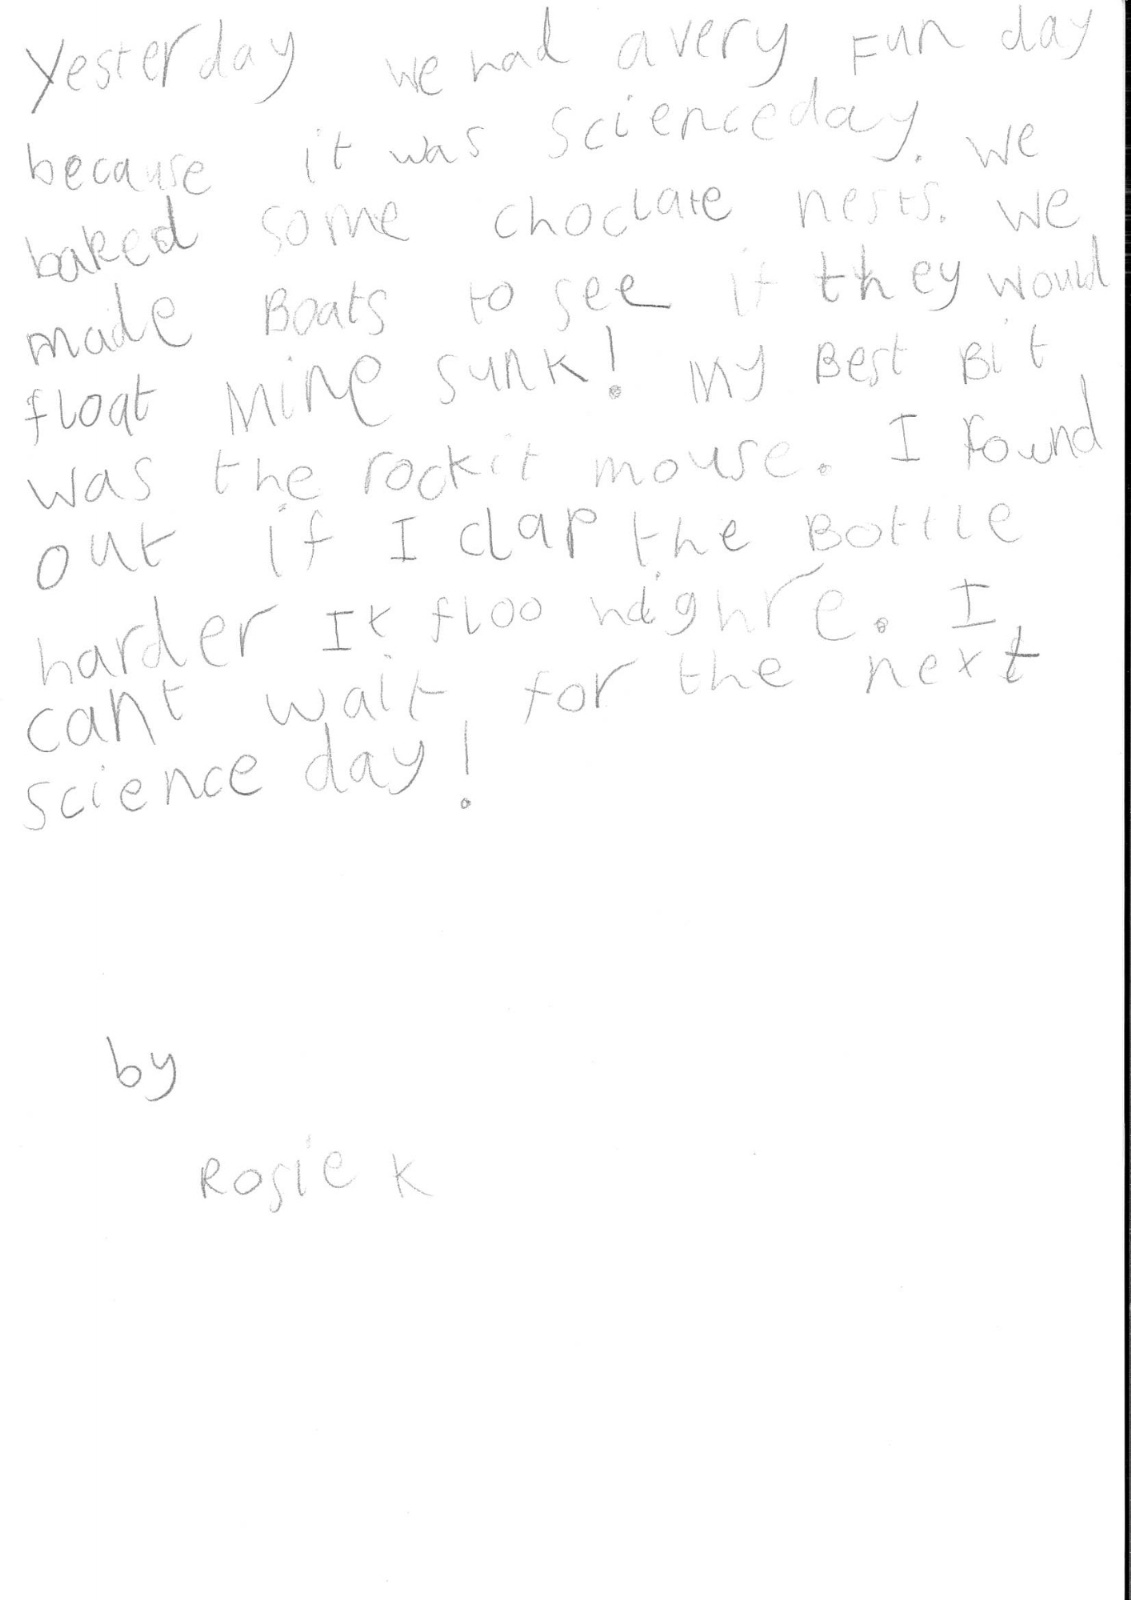 Yesterday we had a very Fun day
because it was scienceday. We
baked some choclate nests. We
made Boats to see if they would
float Mine sunk! My Best Bit
was the rockit mouse. I found
out if I clap the Bottle
harder It floo highre. I
cant wait for the next
science day!
by
Rosie K